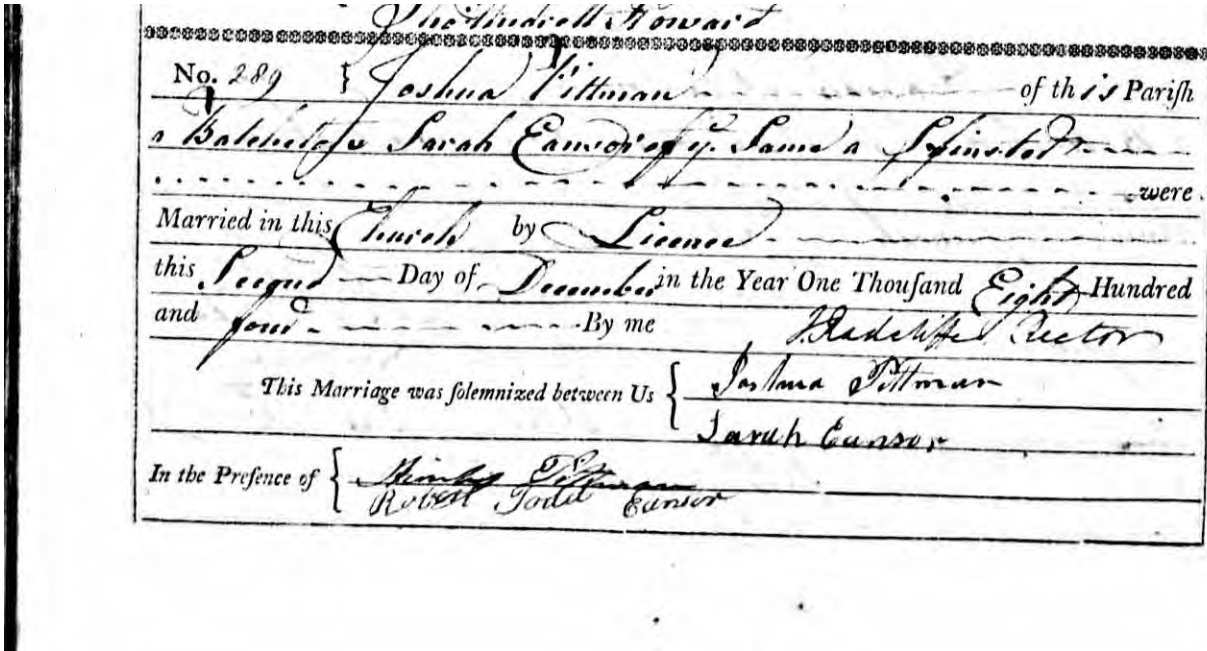 Howard
No. 289 } Joshua Pittman of this Pariſh
a Batchelor & Sarah Eansor of yͤ. Same a Spinster
were
Married in this Church by Licence
this Second Day of December in the Year One Thouſand Eight Hundred
and four By me J. Radcliffe Rector
This Marriage was ſolemnized between Us { Joshua Pittman
Sarah Eansor
In the Preſence of { Pittman
Robert Todd Eansor